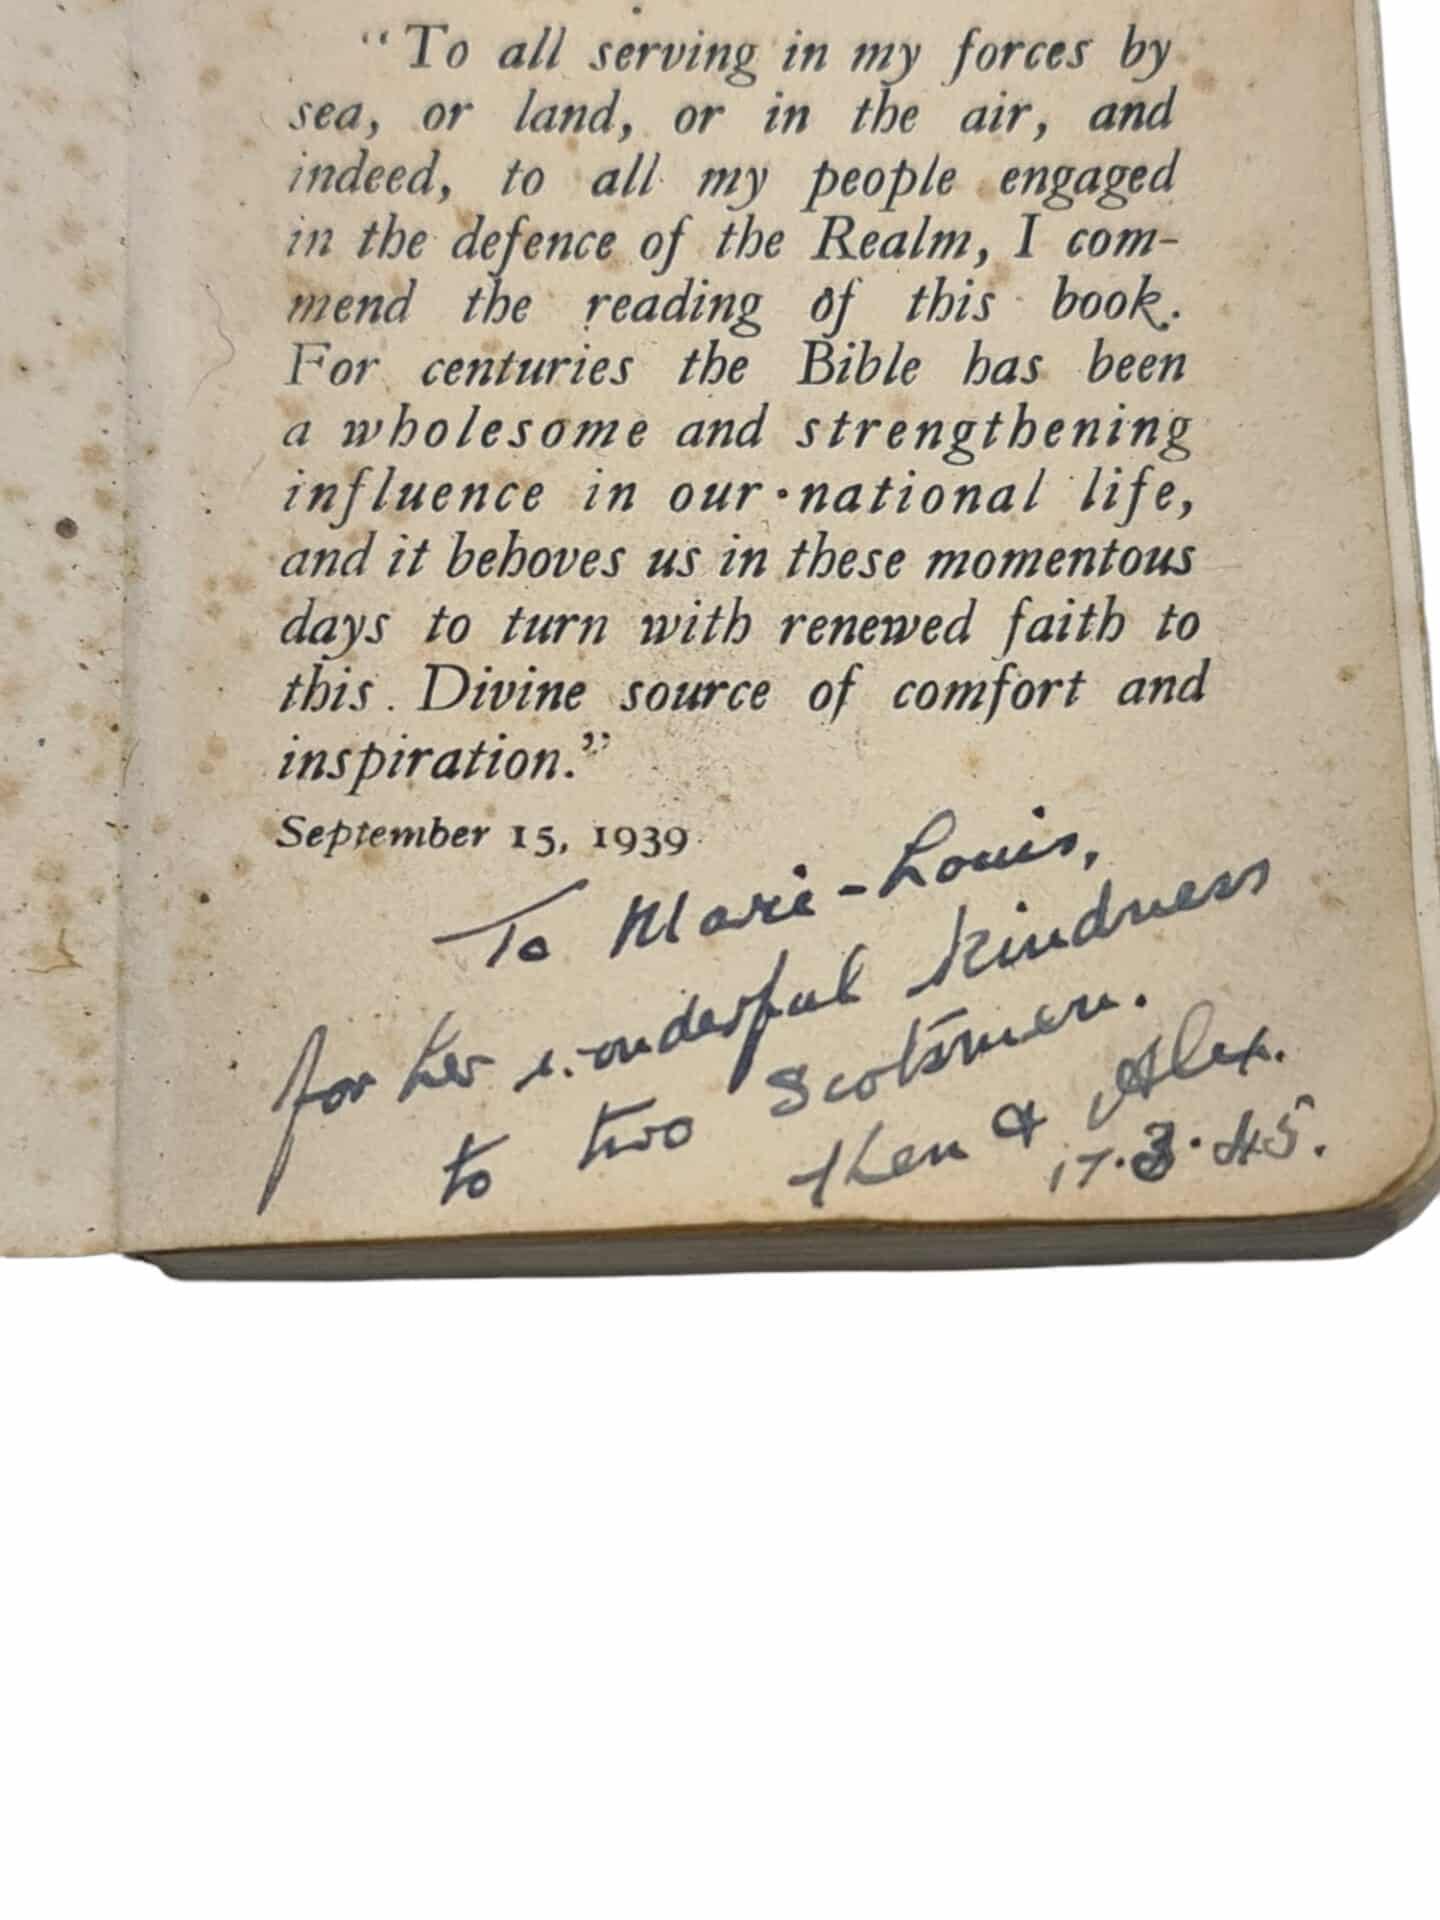 "To all serving in my forces by
sea, or land, or in the air, and
indeed, to all my people engaged
in the defence of the Realm, I com-
mend the reading of this book.
For centuries the Bible has been
a wholesome and strengthening
influence in our national life,
and it behoves us in these momentous
days to turn with renewed faith to
this Divine source of comfort and
inspiration."
September 15, 1939
To Marie-Louis,
for her wonderful kindness
to two Scotsmen.
Ken & Alex.
17.3.45.